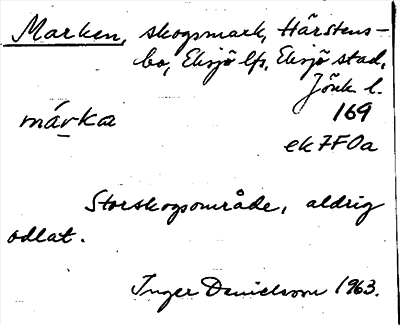 Marken, skogsmark, Härstens-
bo, Eksjö lfs, Eksjö stad,
Jönk l.
márka 169
ek 7F0a
Storskogsområde, aldrig
odlat.
Inger Danielsson 1963.